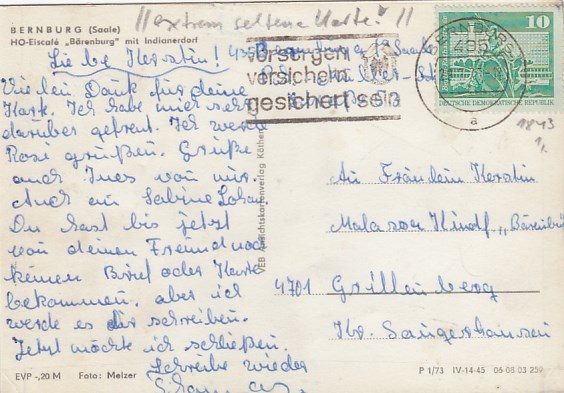 "extrem seltene Karte" !!
BERNBURG (Saale)
HO-Eiscafé „Bärenburg" mit Indianerdorf
Liebe Kerstin!
435 Bernburg a. d. Saale
vorsorgen
versichern
gesichert sein
10
DEUTSCHE DEMOKRATISCHE REPUBLIK
a
1843
1,-
Vielen Dank für deine
Karte. Ich habe mich sehr
darüber gefreut. Ich werde
Rosi grüßen. Grüße
auch Ines von mir.
Auch ein Sabine
Du hast bis jetzt
von deinem Freund noch
keinen Brief oder Karte
bekommen, aber ich
werde es dir schreiben.
Jetzt möchte ich schließen.
Schreibe wieder
VEB Ansichtskartenverlag Köthen
An Fräulein Kerstin
Kindf „Bärenbu
4701 Grillenberg
Kr. Sangerhausen
EVP -,20 M Foto: Melzer
P 1/73 IV-14-45 05 08 03 259